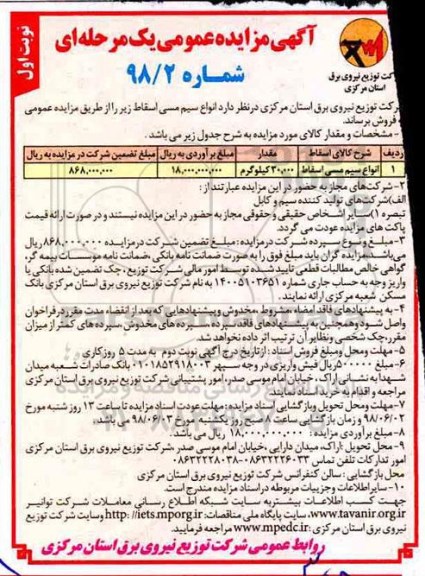 آگهی مزایده عمومی یک مرحله‌ای
شماره ۹۸/۲
نوبت اول
شرکت توزیع نیروی برق
استان مرکزی
شرکت توزیع نیروی برق استان مرکزی درنظر دارد انواع سیم مسی اسقاط زیر را از طریق مزایده عمومی
فروش برساند.
- مشخصات و مقدار کالای مورد مزایده به شرح جدول زیر می باشد.
ردیف شرح کالای اسقاط مقدار مبلغ برآوردی به ریال مبلغ تضمین شرکت در مزایده به ریال
۱ انواع سیم مسی اسقاط ۳۰,۰۰۰ کیلوگرم ۱۸,۰۰۰,۰۰۰,۰۰۰ ۸۶۸,۰۰۰,۰۰۰
۲- شرکت‌های مجاز به حضور در این مزایده عبارتند از:
الف) شرکت‌های تولید کننده سیم و کابل
تبصره ۱) سایر اشخاص حقیقی و حقوقی مجاز به حضور در این مزایده نیستند و در صورت ارائه قیمت
پاکت های مزایده عودت می گردد.
۳- مبلغ و نوع سپرده شرکت در مزایده: مبلغ تضمین شرکت در مزایده ۸۶۸,۰۰۰,۰۰۰ ریال
می باشد. مزایده گران باید مبلغ فوق را به صورت ضمانت نامه بانکی، ضمانت نامه موسسات بیمه گر،
گواهی خالص مطالبات قطعی تایید شده توسط امور مالی شرکت توزیع، چک تضمین شده بانکی یا
واریز وجه به حساب جاری شماره ۱۴۰۰۵۱۰۳۶۵۱ به نام شرکت توزیع نیروی برق استان مرکزی بانک
مسکن شعبه مرکزی ارائه نمایند.
۴- به پیشنهادهای فاقد امضاء، مشروط، مخدوش و پیشنهادهایی که بعد از انقضاء مدت مقرر در فراخوان
واصل شود و همچنین به پیشنهادهای فاقد سپرده، سپرده های مخدوش، سپرده های کمتر از میزان
مقرر، چک شخصی و نظایر آن ترتیب اثر داده نخواهد شد.
۵- مهلت محل و مبلغ فروش اسناد: از تاریخ درج آگهی نوبت دوم به مدت ۵ روز کاری
۶- مبلغ ۵۰۰۰۰۰ ریال فیش واریزی در وجه سپهر بانک صادرات شعبه میدان
شهدا به نشانی اراک، خیابان امام موسی صدر، امور پشتیبانی شرکت توزیع نیروی برق استان مرکزی
مراجعه و اقدام به خرید اسناد نمایند.
۷- مهلت محل تحویل و بازگشایی اسناد مزایده: مهلت عودت اسناد مزایده تا ساعت ۱۳ روز شنبه مورخ
و زمان بازگشایی ساعت ۸ صبح روز یکشنبه مورخ می باشد.
۸- مبلغ برآوردی مزایده: ۱۸,۰۰۰,۰۰۰,۰۰۰ ریال می باشد.
۹- محل تحویل: اراک، میدان دارایی، خیابان امام موسی صدر، شرکت توزیع نیروی برق استان مرکزی
امور تدارکات تلفن تماس ۰۸۶۳۲۲۲۶۰۳۳-۰۸۶۳۲۲۲۸۰۳۸
محل بازگشایی: سالن کنفرانس شرکت توزیع نیروی برق استان مرکزی
۱۰- سایر اطلاعات و جزییات مربوطه در اسناد مزایده مندرج است.
جهت کسب اطلاعات بیشتر به سایت شبکه اطلاع رسانی معاملات شرکت توانیر
www.tavanir.org.ir، سایت پایگاه ملی مناقصات: http://iets.mporg.ir و سایت شرکت توزیع
نیروی برق استان مرکزی: www.mpedc.ir مراجعه فرمایید.
روابط عمومی شرکت توزیع نیروی برق استان مرکزی